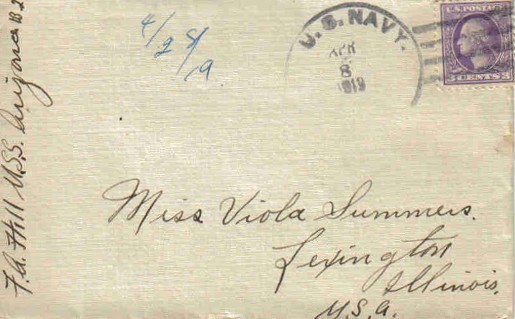 F.A. Hill U.S.S. Arizona B 2
4/28/19
U.S. NAVY.
APR
8
1919
U.S. POSTAGE
3 CENTS 3
Miss Viola Summers.
Lexington
Illinois.
U.S.A.